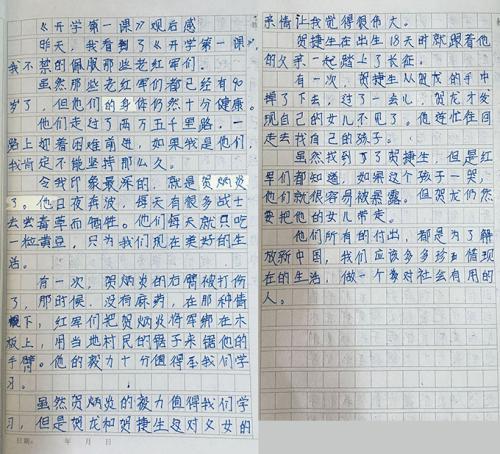 《开学第一课》观后感
昨天，我看到了《开学第一课》，
我不禁的佩服那些老红军们。
虽然那些老红军们都已经有90
岁了，但他们的身体仍然十分健康。
他们走过了两万五千里路，一
路上迎着困难前进，如果我是他们，
我肯定不能坚持那么久。
令我印象最深的，就是贺炳炎
了。他日夜奔波，每天有很多战士
去尝毒草而牺牲。他们每天就只吃
一粒黄豆，只为我们现在美好的生
活。
有一次，贺炳炎的右臂被打伤
了，那时候，没有麻药，在那种情
况下，红军们把贺炳炎将军绑在木
板上，用当地村民的锯子来锯他的
手臂。他的毅力十分值得至我们学
习。
虽然贺炳炎的毅力值得我们学
习，但是贺龙和贺捷生这对父女的
日期： 年 月 日
亲情让我觉得很伟大。
贺捷生在出生18天时就跟着他
的父亲一起踏上了长征。
有一次，贺捷生从贺龙的手中
掉了下去，过了一会儿，贺龙才发
现自己的女儿不见了。他连忙往回
走去找自己的孩子。
虽然找到了了贺捷生，但是红
军们都知道，如果这个孩子一哭，
他们就很容易被暴露。但贺龙仍然
要把他的女儿带走。
他们所有的付出，都是为了解
放新中国，我们应该多多珍惜现
在的生活，做一个对社会有用的
人。